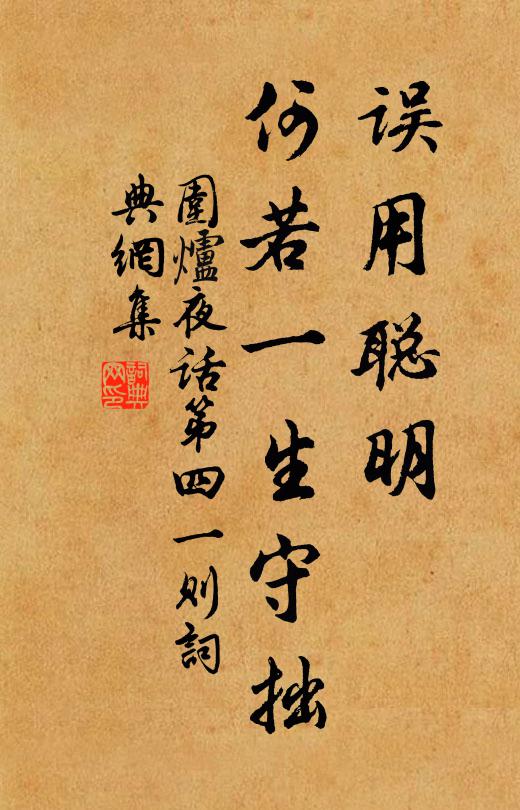 误用聪明
何若一生守拙
圍爐夜话第四一则詞
典網集
詞典
网印